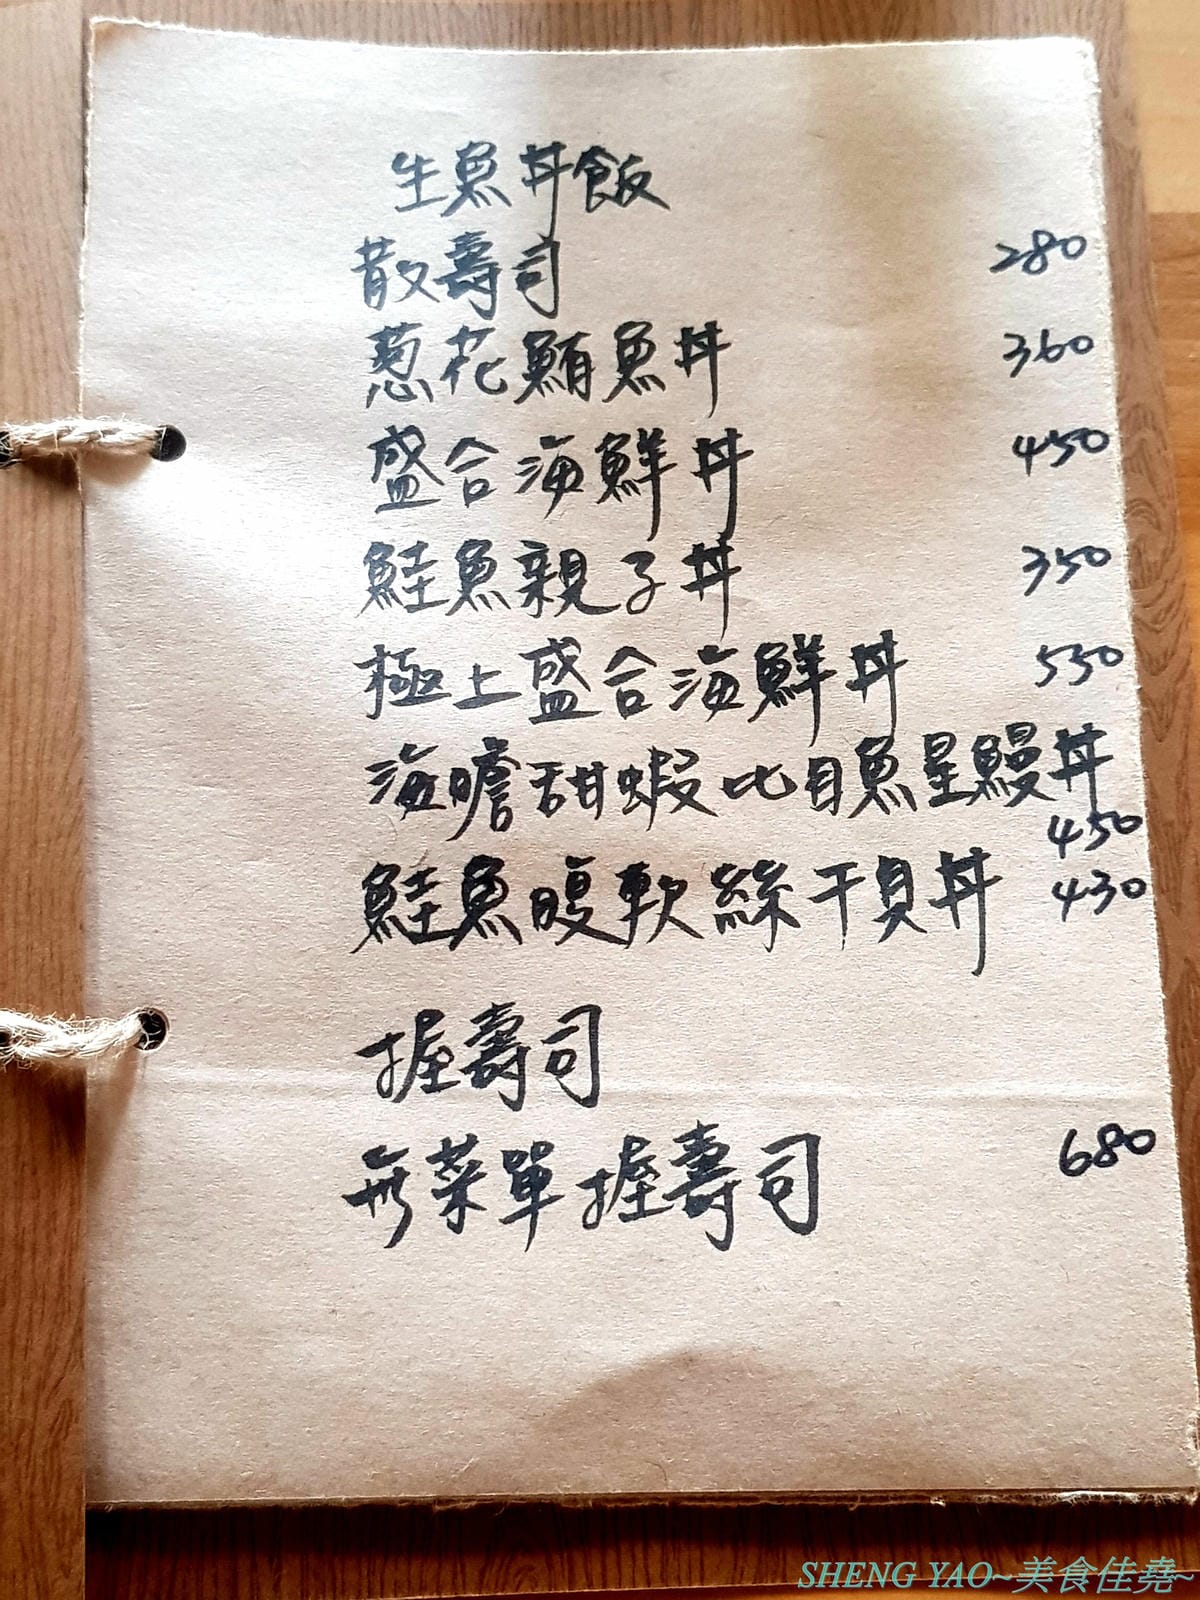 生魚丼飯
散壽司 280
葱花鮪魚丼 360
盛合海鮮丼 450
鮭魚親子丼 350
極上盛合海鮮丼 530
海膽甜蝦比目魚星鰻丼
450
鮭魚腹軟絲干貝丼 430
握壽司
無菜單握壽司 680
SHENG YAO~美食佳堯~